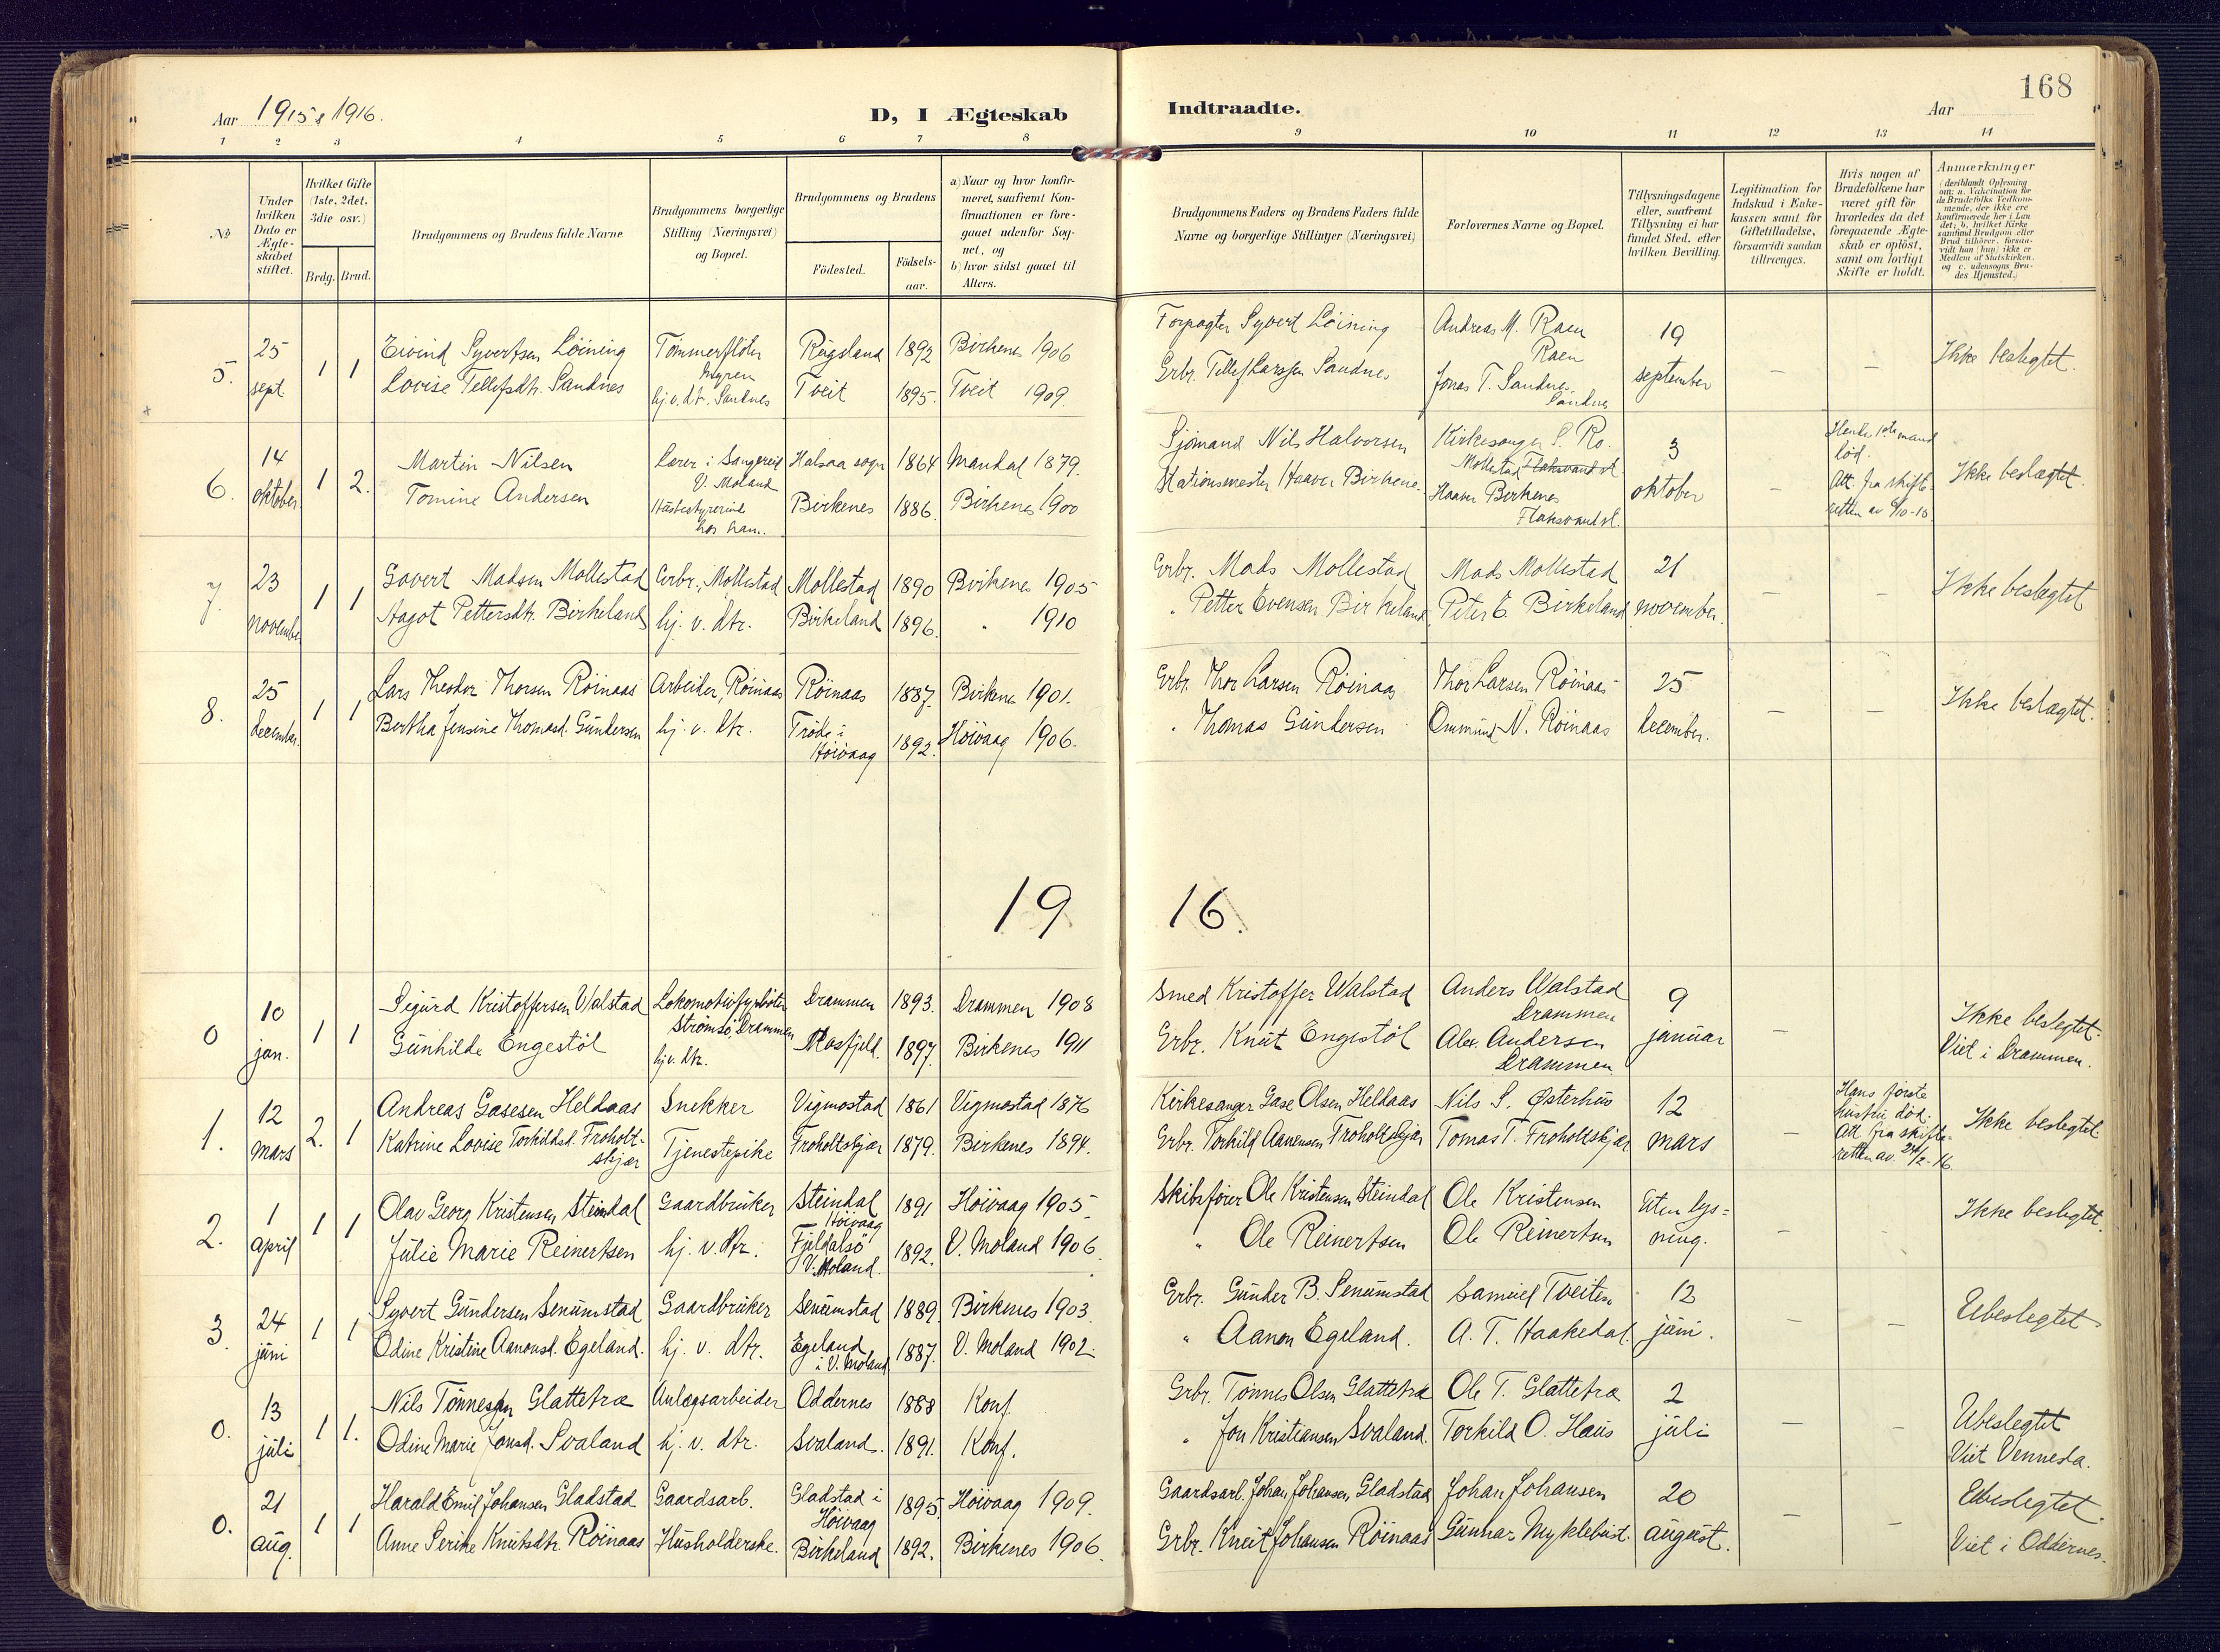 168
Aar 1915 & 1916.
D, I Ægteskab Indtraadte.
Aar
1 2 3 4 5 6 7 8 9 10 11 12 13 14
№
Under hvilken Dato er Ægte-skabet stiftet.
Hvilket Gifte (1ste, 2det, 3die osv.)
Brdg. Brud.
Brudgommens og Brudens fulde Navne
Brudgommens borgerlige Stilling (Næringsvei) og Bopæl.
Brudgommens og Brudens
Födested. Födsels-aar.
a) Naar og hvor konfir-meret, saafremt Kon-firmationen er fore-gaaet udenfor Sog-net, og
b) hvor sidst gaaet til Alters.
Brudgommens Faders og Brudens Faders fulde Navne og borgerlige Stillinger (Næringsvei)
Forlovernes Navne og Bopæl.
Tillysningsdagene eller, saafremt Tillysning ei har fundet Sted, efter hvilken Bevilling.
Legitimation for Indskud i Enke-kassen samt for Giftetilladelse, forsaavidt saadan tiltrænges.
Hvis nogen af Brudefolkene har været gift för hvorledes da det foregaaende Ægte-skab er oplöst, samt om lovligt Skifte er holdt.
Anmærkninger
(deriblandt Oplysning om: a. Vakcination for de Brudefolks Vedkom-mende, der ikke ere konfirmerede her i Lan det; b. hvilket Kirke samfund Brudgom eller Brud tilhörer, forsaa-vidt han (hun) ikke er Medlem af Statskirken, og c. udensogns Bru-des Hjemsted.)
5. 25 sept. 1 1
Eivind Syvertsen Löining Tömmerflöter Myren Rugsland 1892 Birkenes 1906 Forpagter Syvert Löining Andreas M. Raen Raen 19
Lovise Tellefsdtr. Sandnes hj. v. dtr. Sandnes Tveit 1895. Tveit 1909. Grbr. Tellef Larssen Sandnes Jonas T. Sandnes. Sandnes september — — Ikke beslegtet.
6. 14 oktober 1 2.
Martin Nilsen Lærer i V. Moland Halsaa sogn 1864 Mandal 1879. Sjömand Nils Halvorsen Kirkesanger S. Ro. Mollestad Flaksvand st. 3
Tomine Andersen Husbestyrerinde hos ham. Birkenes 1886. Birkenes 1900 Stationsmester Haaver Birkenes. Haaver Birkenes Flaksvand st. oktober — Hendes 1ste mand död. Att. fra skifte-retten av Ikke beslægtet.
7. 23 November 1 1
Govert Madsen Mollestad Grbr., Mollestad Mollestad 1890 Birkenes 1905 Grbr. Mads Mollestad Mads Mollestad 21
Aagot Pettersdtr. Birkeland hj. v. dtr. Birkeland 1896. " 1910 " Petter Evensen Birkeland Peter E. Birkeland november. — — Ikke beslegtet
8. 25 december. 1 1
Lars Theodor Thorsen Röinaas Arbeider, Röinaas Röinaas 1887. Birkenes 1901. Grbr. Thor Larsen Röinaas Thor Larsen Röinaas 25
Bertha Jensine Thomasd. Gundersen hj. v. dtr. Tröde i Höivaag 1892. Höivaag 1906. " Thomas Gundersen Ommund N. Röinaas december. — — Ikke beslægtet.
1916.
0 10 jan. 1 1
Sigurd Kristoffersen Walstad Lokomotivfyrböter Strömsö, Drammen Drammen 1893. Drammen 1908 Smed Kristoffer Walstad Anders Walstad Drammen 9
Gunhilde Engestöl hj. v. dtr. Mosfjeld. 1897. Birkenes 1911 Grbr. Knut Engestöl Alex. Andersen Drammen januar — Ikke beslegtet. Viet i Drammen.
1. 12 mars 2. 1
Andreas Gasesen Heldaas Snekker Vigmostad 1861 Vigmostad 1876 Kirkesanger Gase Olsen Heldaas Nils S. Østerhus 12
Katrine Lovise Torkildsd. Froholt-skjær Tjenestepike Froholtskjær 1879. Birkenes 1894. Grbr. Torkild Aanensen Froholtskjær Tomas T. Froholtskjær mars — Hans förste hustru död. Att fra skifte-retten av. 24/2-16. Ikke beslegtet
2. 1 April 1 1
Olav Georg Kristensen Steindal Gaardbruker Steindal Höivaag 1891 Höivaag 1905 Skibsförer Ole Kristensen Steindal Ole Kristensen Uten lys=
Julie Marie Reinertsen hj. v. dtr. Fjeldalsö V. Moland. 1892. V. Moland 1906. " Ole Reinertsen Ole Reinertsen ning. — — Ikke beslegtet.
3. 24 juni 1 1
Syvert Gundersen Senumstad Gaardbruker Senumstad 1889. Birkenes 1903. Grbr. Gunder B. Senumstad Samuel Tveiten 12
Odine Kristine Aanonsd. Egeland. hj. v. dtr. Egeland i V. Moland 1887. V. Moland 1902. " Aanon Egeland. A. T. Haakedal. juni. — — Ubeslegtet
0. 13 juli 1 1.
Nils Tönnessen Glattetræ Anlægsarbeider Oddernes 1888 Konf. Grbr. Tönnes Olsen Glattetræ Ole T. Glattetræ 2
Odine Marie Jonsd. Svaland hj. v. dtr. Svaland. 1891. Konf. " Jon Kristiansen Svaland. Torkild O. Haus juli — — Ubeslegtet Viet Vennesla.
0. 21 aug. 1 1
Harald Emil Johansen Gladstad Gaardsarb. Gladstad i Höivaag 1895. Höivaag 1909. Gaardsarb. Johan Johansen Gladstad Johan Johansen 20
Anne Serike Knutsdtr. Röinaas Husholderske. Birkeland 1892. Birkenes 1906. Grbr. Knut Johansen Röinaas Gunnar Myklebust. august. — — Ubeslegtet. Viet i Oddernes.